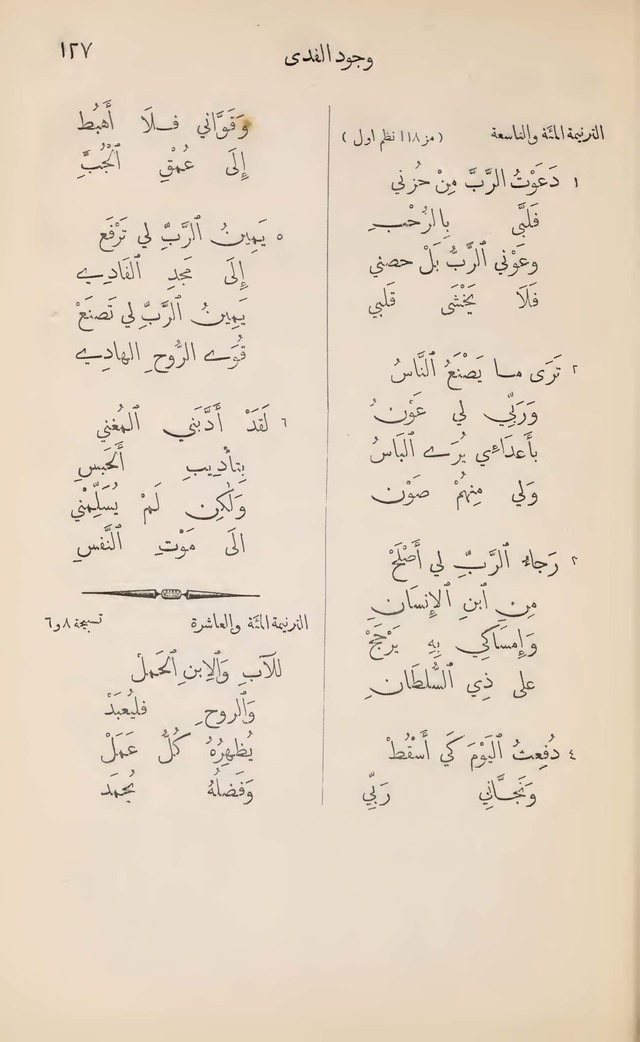 وجود الفدى
١٢٧
الترنيمة المئة والتاسعة (مز ١١٨ نظم اول)
١ دَعَوْتُ الرَّبَّ مِنْ حُزْني
فَلَبَّى بِالرُّحْبِ
وعَوْني ٱلرَّبُّ بَلْ حصني
فَلَا يَخْشَى قَلبي
٢ تَرَى مـا يَصْنَعُ ٱلنَّاسُ
وَرَبِّي لي عَوْنُ
بأَعدَاءي يُرَى ٱلبَاسُ
وَلي مِنهُمْ صَوْن
٣ رَجاءُ ٱلرَّبِّ لي أَصْلَحْ
مِنِ ٱبنِ الإِنسَانِ
وَإِمسَاكي بِهِ يَرْجَحْ
على ذِي السُّلطَانِ
٤ دُفِعتُ ٱليَوْمَ كَي أَسْقُطْ
وَنَجَّاني رَبِّي
وَقَوَّاني فـلَا أَهبُط
إِلَى عُمْقِ ٱلْجُبِّ
٥ يَمِينُ ٱلرَّبِّ لي تَرْفَع
إِلَى مَجدِ ٱلفَادِي
يَمِينُ ٱلرَّبِّ لي تَصنَعْ
قُوَى الرُّوحِ الهادِي
٦ لَقَدْ أَدَّبَني ٱلمُغني
بِتأدِيبِ ٱلحَبسِ
وَلٰكِن لَمْ يُسَلِّمْني
الَى مَوْتِ ٱلنَّفسِ
الترنيمة المئة والعاشرة تسبحة ٨ و٦
للآبِ وَٱلِابنِ ٱلحَمَلْ
وَالروحِ فليُعبَدْ
يُظهِرُهُ كُلُّ عَمَلْ
وَفَضلُهُ يُحمَد